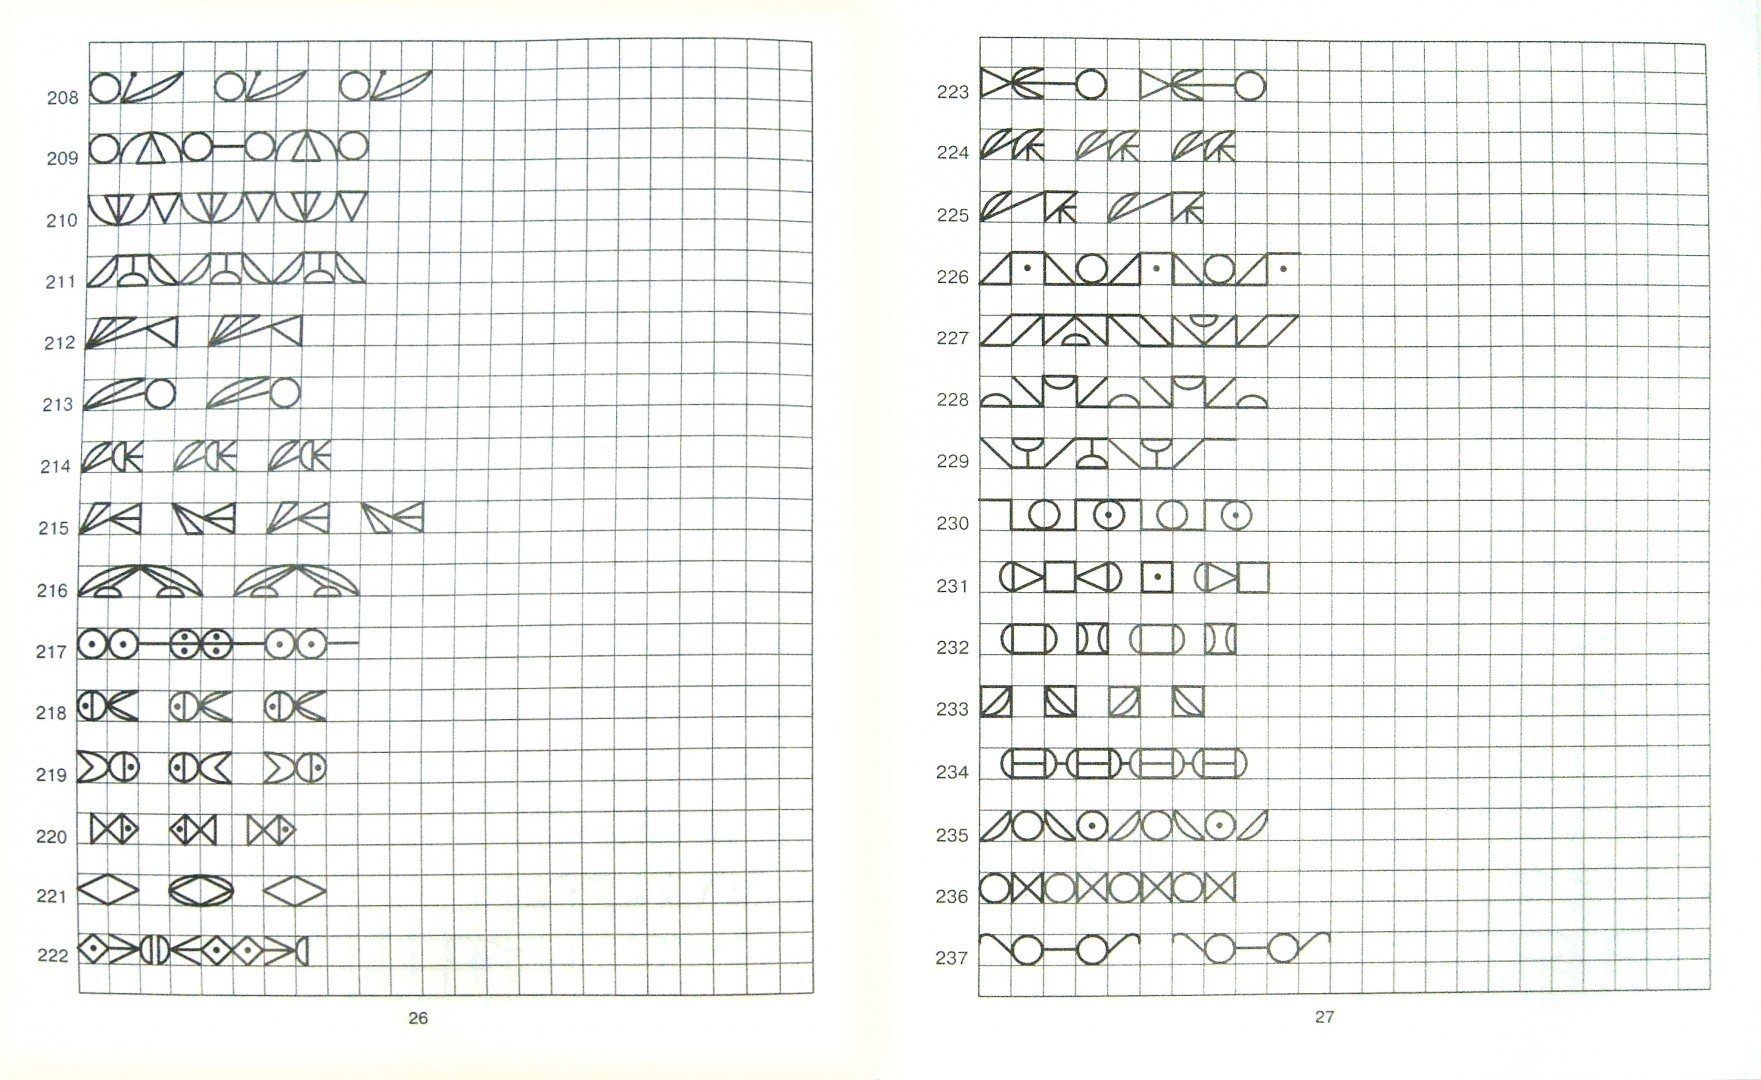 208
209
210
211
212
213
214
215
216
217
218
219
220
221
222
26
223
224
225
226
227
228
229
230
231
232
233
234
235
236
237
27